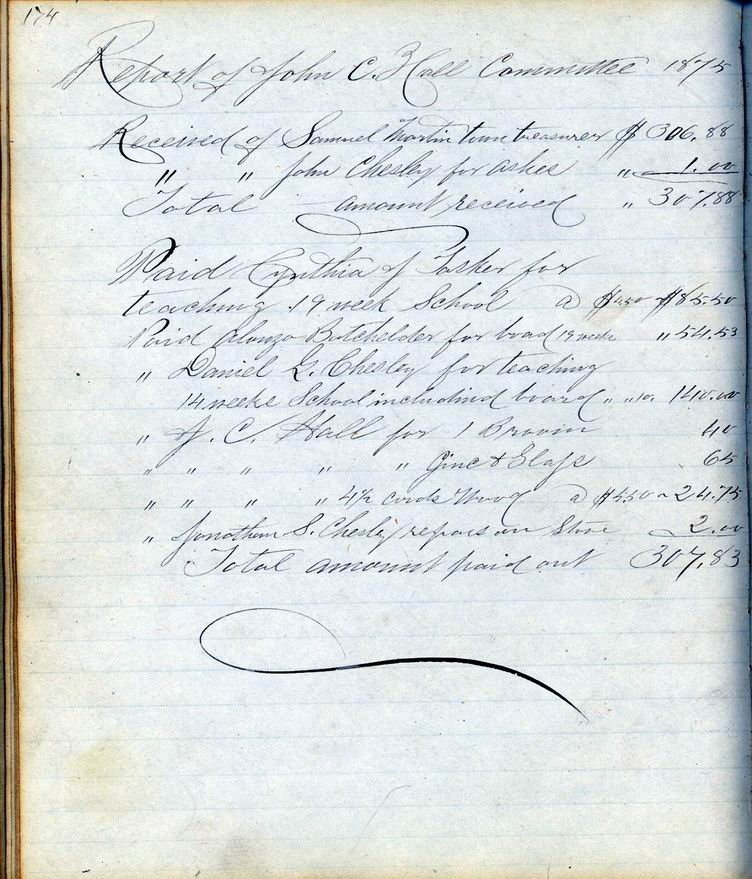 174
Report of John C. Hall Committee 1875
Received of Samuel Martin town treasurer $ 306.88
" " John Chesley for ashes " 1.00
Total amount received " 307.88
Paid Cynthia J Tasker for
teaching 19 week School a $4.50 $85.50
Paid Alonzo Batchelder for boad 19 weeks " 54.53
" Daniel G. Chesley for teaching
14 weeks School includind board " " 10. 140.00
" J. C. Hall for 1 Broom 40
" " " " " & Glass 65
" " " " 4½ cords Wood a $5.50 " 24.75
" Jonathan S. Chesley repairs on Stove 2.00
Total amount paid out 307.83